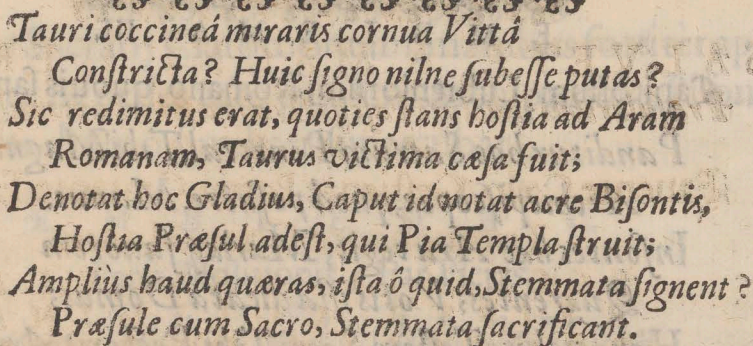 Tauri coccineâ miraris cornua Vittâ
Conſtricta? Huic ſigno nilne ſubeſſe putas?
Sic redimitus erat, quoties ſtans hoſtia ad Aram
Romanam, Taurus victima cæſa fuit;
Denotat hoc Gladius, Caput id notat acre Biſontis,
Hoſtia Præſul adeſt, qui Pia Templa ſtruit;
Ampliùs haud quæras, iſta ô quid, Stemmata ſignent?
Præſule cum Sacro, Stemmata ſacrificant.